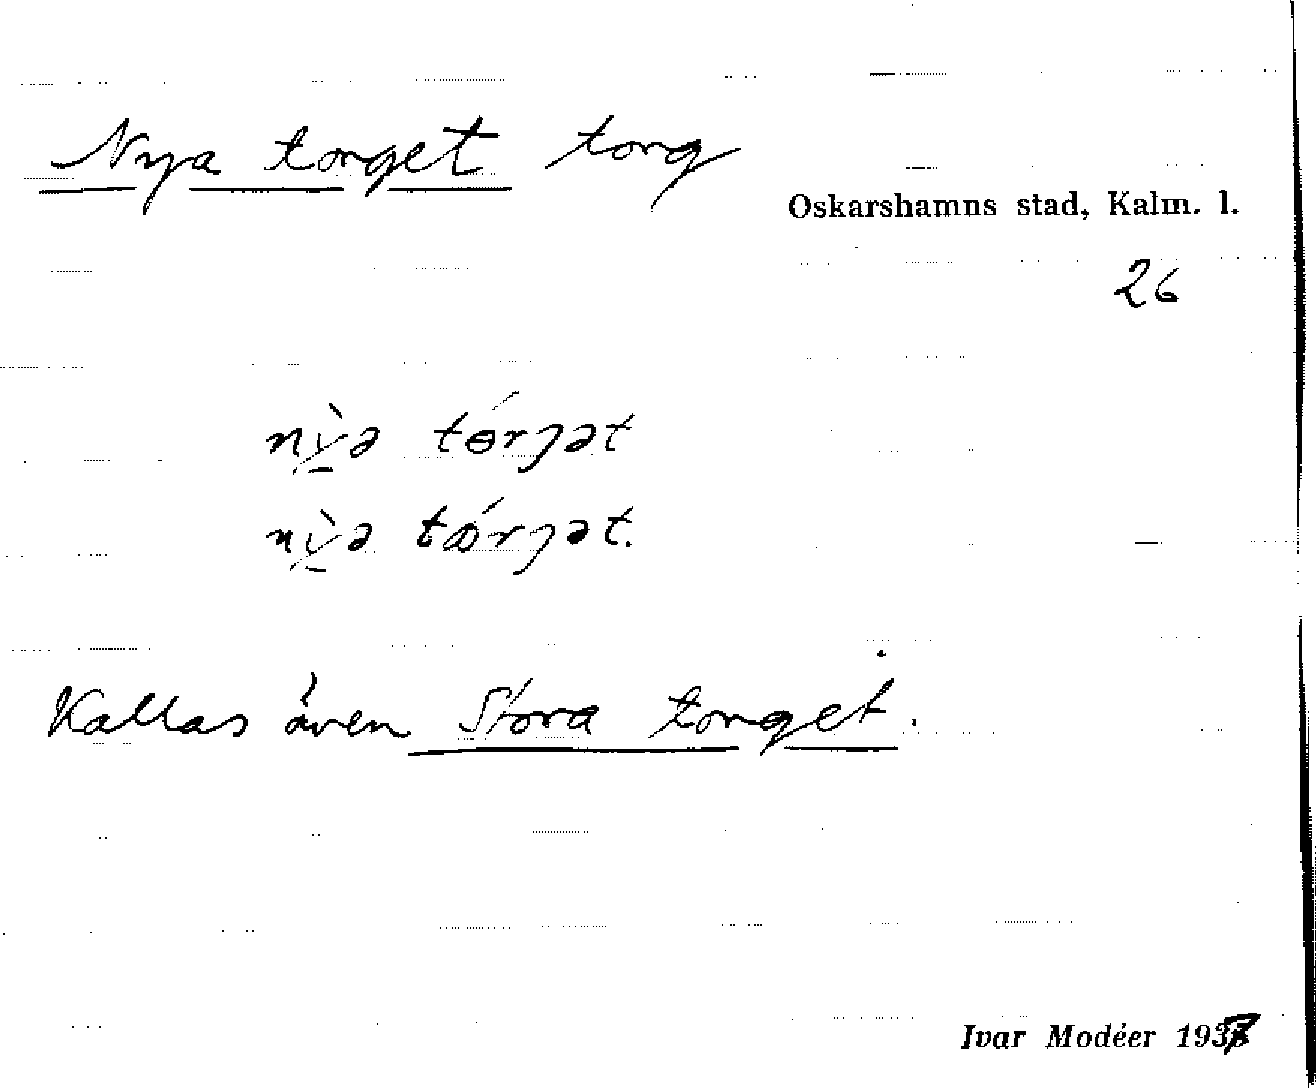 Nya torget torg
Oskarshamns stad, Kalm. l.
26
nỳə tɵ́rjət
nỳə tɷ́rjət.
Kallas även Stora torget.
Ivar Modéer 1937